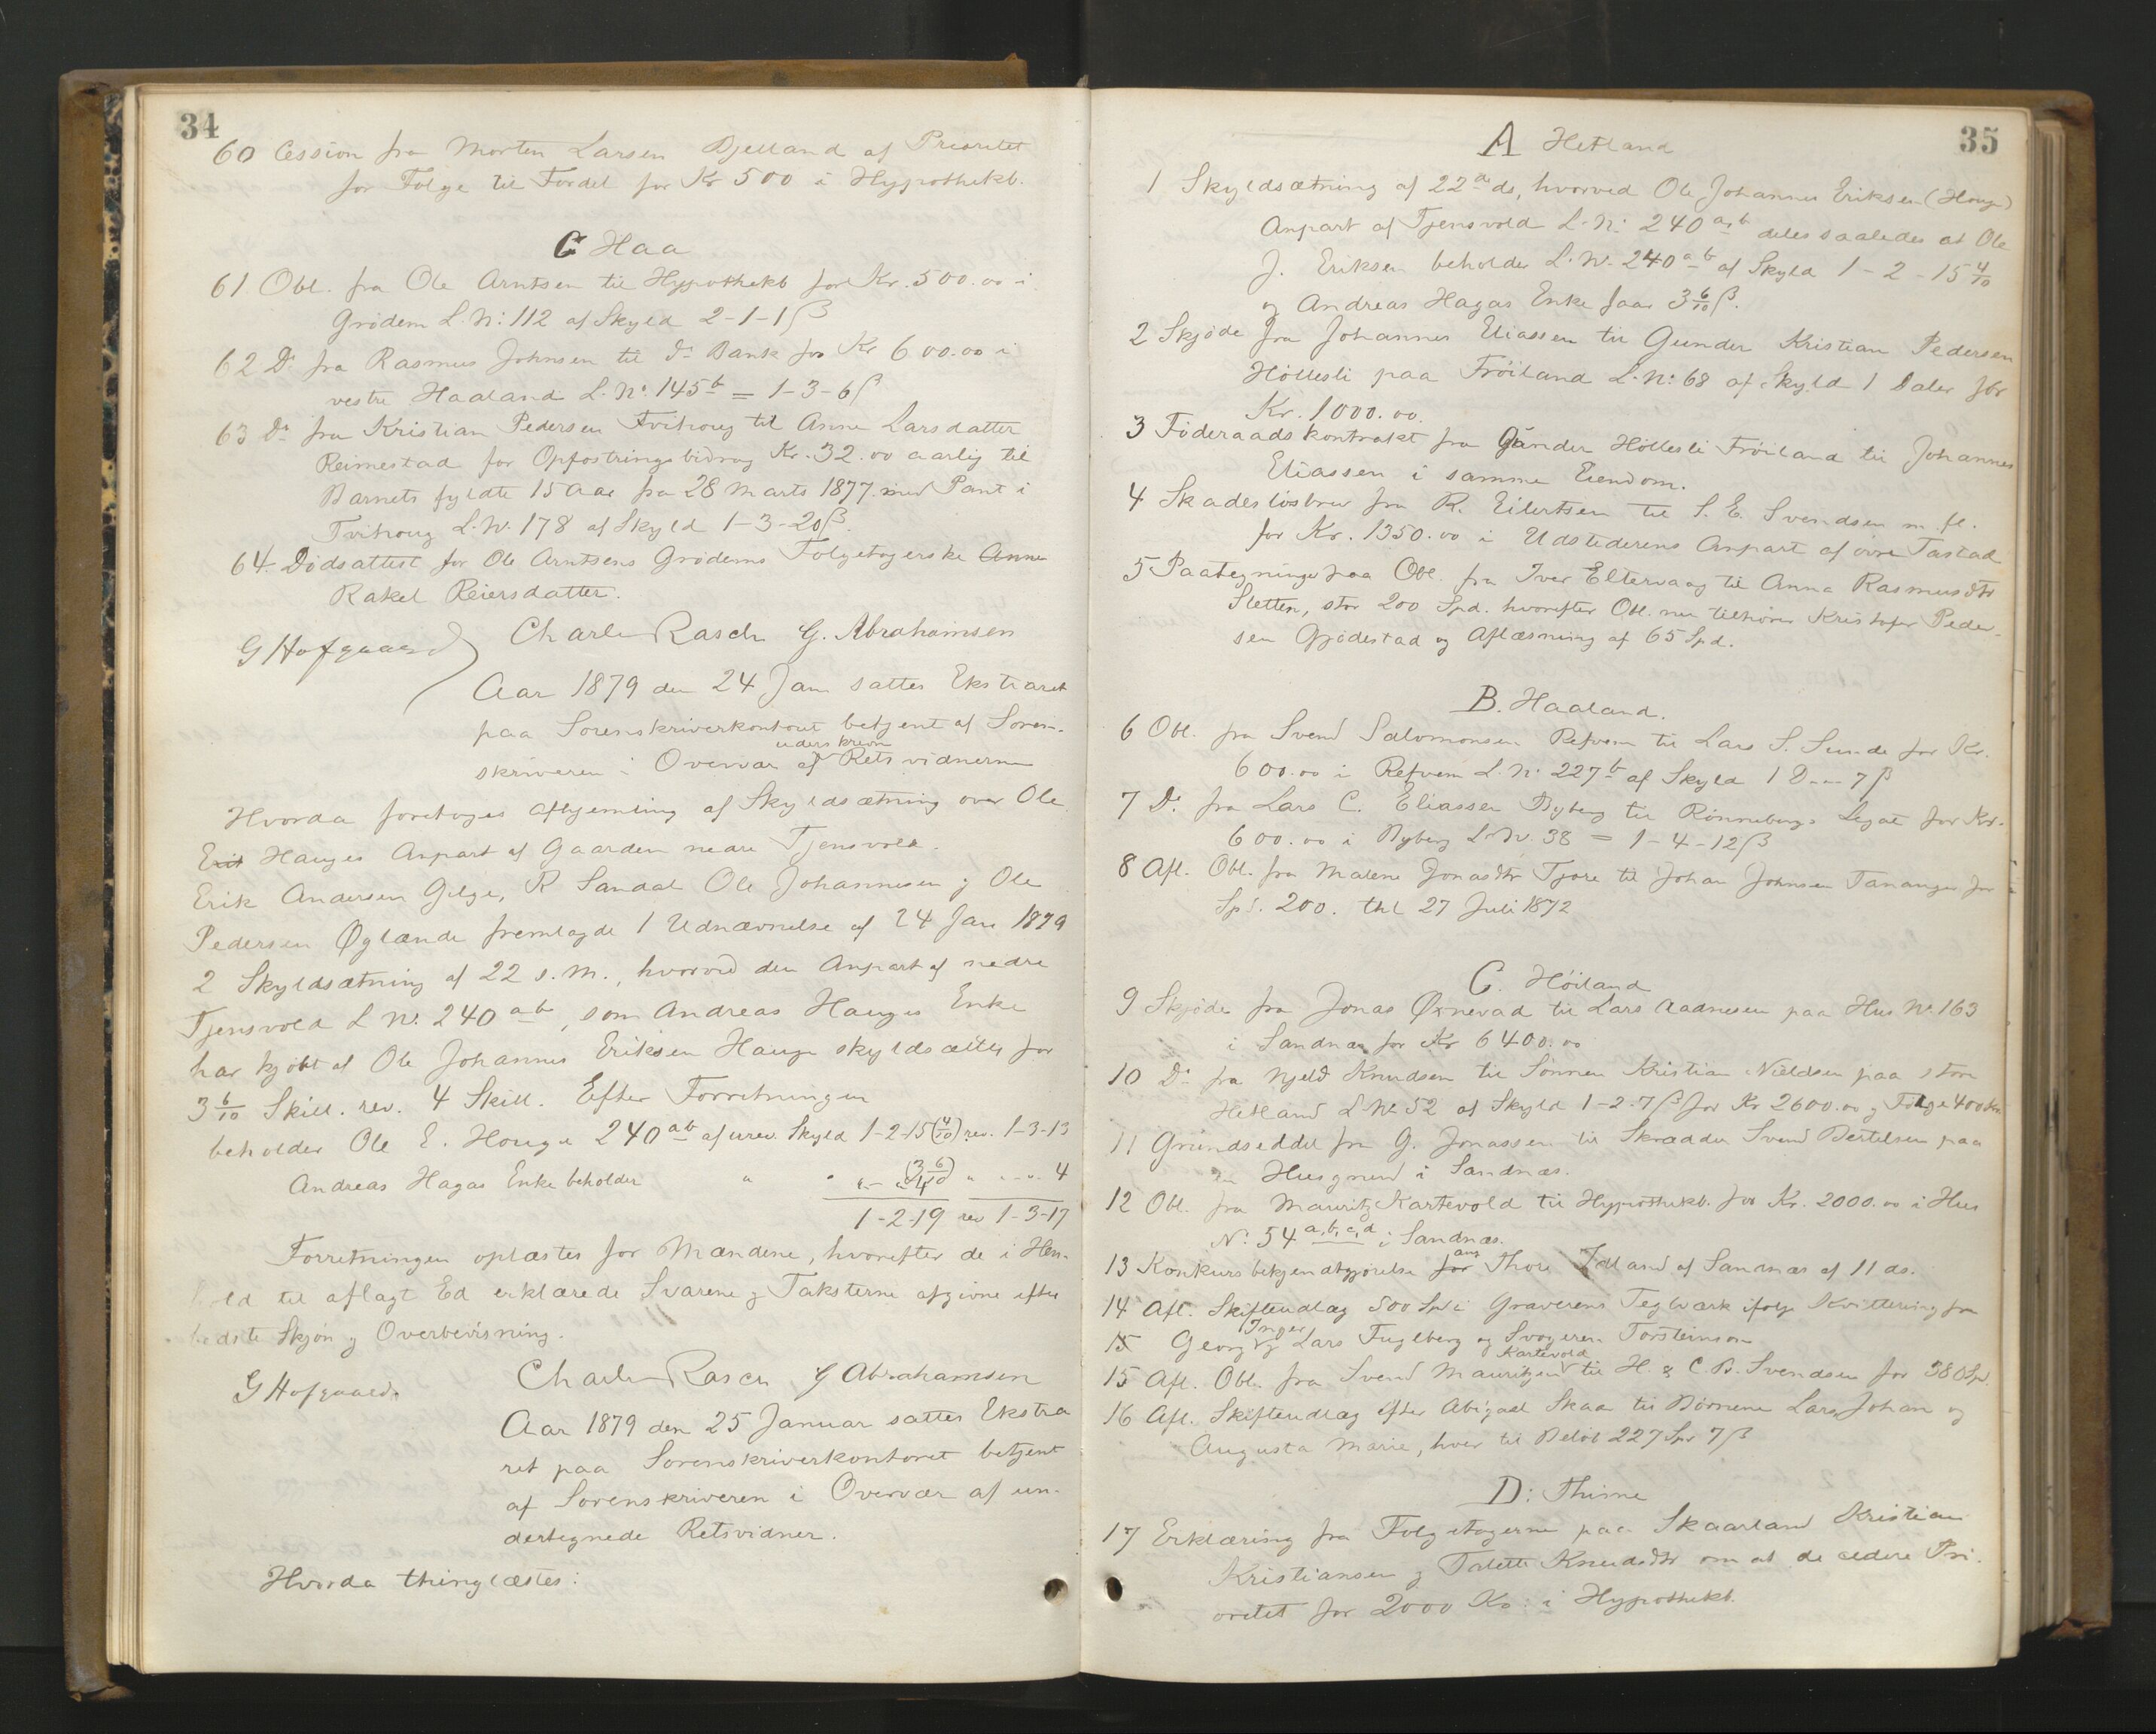 34
60 Cession fra Morten Larsen Bjelland af Prioritet
for Folge til Fordel for Kr 500 i Hypothekb.
C Haa
61 Obl. fra Ole Arntsen til Hypothekb for Kr. 500.00 i
Grödem L. No: 112 af Skyld 2-1-1 β
62 Do fra Rasmus Johnsen til do Bank for Kr 600.00 i
vestre Haaland L. No. 145 b = 1-3-6 β
63 Do fra Kristian Pedersen Tvihoug til Anne Larsdatter
Reimestad for Opfostringsbidrag Kr. 32.00 aarlig til
Barnets fyldte 15 Aar fra 28 Marts 1877 med Pant i
Tvihoug L. No. 178 af Skyld 1-3-20 β.
64. Dödsattest for Ole Arntsens Grödems Folgetagerske Anne
Rakel Reiersdatter.
G Hofgaard Charles Rasch G. Abrahamsen
Aar 1879 den 24 Jan sattes Ekstraret
paa Sorenskriverkontoret betjent af Soren-
skriveren i Overvær af underskrevne Retsvidnerne
Hvorda foretoges afhjemling af Skyldsætning over Ole
Erik Hauges Anpart af Gaarden nedre Tjensvold.
Erik Andersen Gilge, R Sandal Ole Johannesen og Ole
Pedersen Øglænde fremlagde 1 Udnævnelse af 24 Jan 1879
2 Skyldsætning af 22 s. M., hvorved den Anpart af nedre
Tjensvold L No. 240 ab, som Andreas Hauges Enke
har kjöbt af Ole Johannes Eriksen Hauge skyldsættes for
3 6/10 Skill. rev. 4 Skill. Efter Forretningen
beholder Ole E. Houge 240 ab af urev. Skyld 1-2-15 (4/10) rev. 1-3-13
Andreas Hagas Enke beholder " " "-" (3 6/10) " "-". 4
1-2-19 rev 1-3-17
Forretningen oplæstes for Mændene, hvorefter de i Hen-
hold til aflagt Ed erklærede Svarene og Taksterne afgivne efter
bedste Skjön og Overbevisning.
G Hofgaard Charles Rasch G Abrahamsen
Aar 1879 den 25 Januar sattes Ekstra
ret paa Sorenskriverkontoret betjent
af Sorenskriveren i Overvær af un-
dertegnede Retsvidner.
Hvorda thinglæstes:
35
A Hetland
1 Skyldsætning af 22de ds, hvorved Ole Johannes Eriksen (Houge)
Anpart af Tjensvold L. No: 240 a,b deles saaledes at Ole
J. Eriksen beholder L. No. 240 a b af Skyld 1-2-15 4/10
og Andreas Hagas Enke faar 3 6/10 β.
2 Skjöde fra Johannes Eliassen til Gunder Kristian Pedersen
Höllesli paa Fröiland L. No: 68 af Skyld 1 Daler for
Kr. 1000.00.
3 Föderaadskontrakt fra Gunder Höllesli Fröiland til Johannes
Eliassen i samme Eiendom.
4 Skadeslösbrev fra R. Eilertsen til S. E. Svendsen m. fl.
for Kr. 1350.00 i Udstederens Anpart af övre Tastad
5 Paategninger paa Obl. fra Iver Eltervaag til Anna Rasmusdtr
Sletten, stor 200 Spd. hvorefter Obl. nu tilhörer Kristofer Peder-
sen Gjödestad og Aflæsning af 65 Spd.
B. Haaland.
6 Obl. fra Svend Salomonsen Refvem til Lars S. Sunde for Kr.
600.00 i Refvem L. No. 227 b af Skyld 1 D-"-7 β
7 Do. fra Lars C. Eliassen Byberg til Rönnebergs Legat for Kr.
600.00 i Byberg L. No. 38 = 1-4-12 β
8 Afl. Obl. fra Malene Jonasdtr Tjore til Johan Johnsen Tananger for
Spd. 200. thl 27 Juli 1872
C. Höiland
9 Skjöde fra Jonas Øxnevad til Lars Aadnesen paa Hus No. 163
i Sandnæs for Kr 6400.00
10 Do fra Njeld Knudsen til Sönnen Kristian Nieldsen paa store
Hetland L No 52 af Skyld 1-2-7 β for Kr 2600.00 og Folge 400 Kr
11 Grundseddel fra G. Jonassen til Skrædder Svend Bertelsen paa
en Husgrund i Sandnæs.
12 Obl. fra Mauritz Kartevold til Hypothekb. for Kr. 2000.00 i Hus
No. 54 a,b,c,d i Sandnæs.
13 Konkursbekjendtgjörelse for ang Thore Idland af Sandnæs af 11 ds.
14 Afl. Skifteudlæg 500 Spd i Graverens Teglværk ifölge Kvittering fra
15 Georg Inger og Lars Fuglberg og Svogeren Torsteinson
15 Afl. Obl. fra Svend Mauritzen Kartevold til H. & C. B. Svendsen for 380 Spd.
16 Afl. Skifteudlæg efter Abigael Skaa til Börnene Lars Johan og
Augusta Marie, hver til Belöb 227 Spd 7 β
D: Thime
17 Erklæring fra Folgetagerne paa Skaarland Kristian
Kristiansen og Talette Knudsdtr om at de cedere Pri-
oritet for 2000 Kr. i Hypothekb.